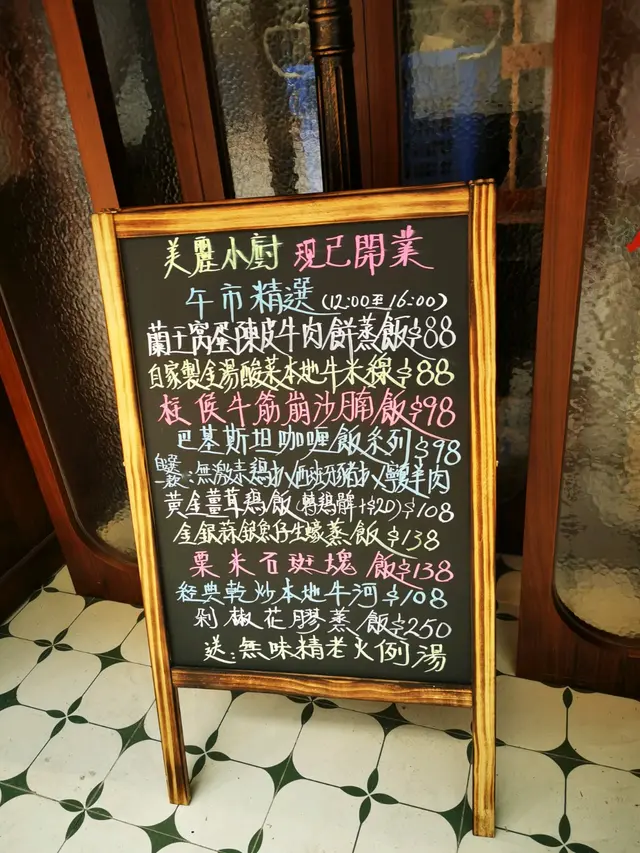 美麗小廚 現已開業
午市精選 (12:00至16:00)
蘭王窩蛋陳皮牛肉餅蒸飯$88
自家製金湯酸菜本地牛米線$88
柱侯牛筋崩沙腩飯$98
巴基斯坦咖喱飯系列$98
:無激素鷄扒/西班牙豬扒/鹽羊肉
黃金薑茸鷄飯(轉鷄髀+$20)$108
金銀蒜銀魚仔生蠔蒸飯$138
粟米石斑塊飯$138
經典乾炒本地牛河$108
剁椒花膠蒸飯$250
送:無味精老火例湯